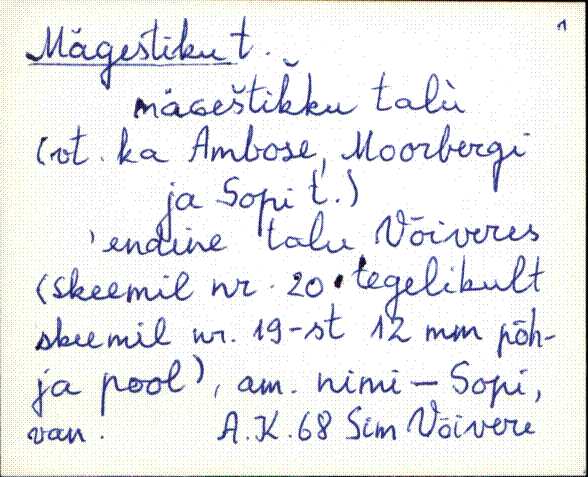 1
Mägestiku t.
mäGeštikku talù
(vt. ka Ambose, Moorbergi
ja Sopi t.)
'endine talu Võiveres
(skeemil nr. 20 tegelikult
skeemil nr. 19-st 12 mm põh-
ja pool), am. nimi — Sopi,
van. A.K.68 Sim Võivere